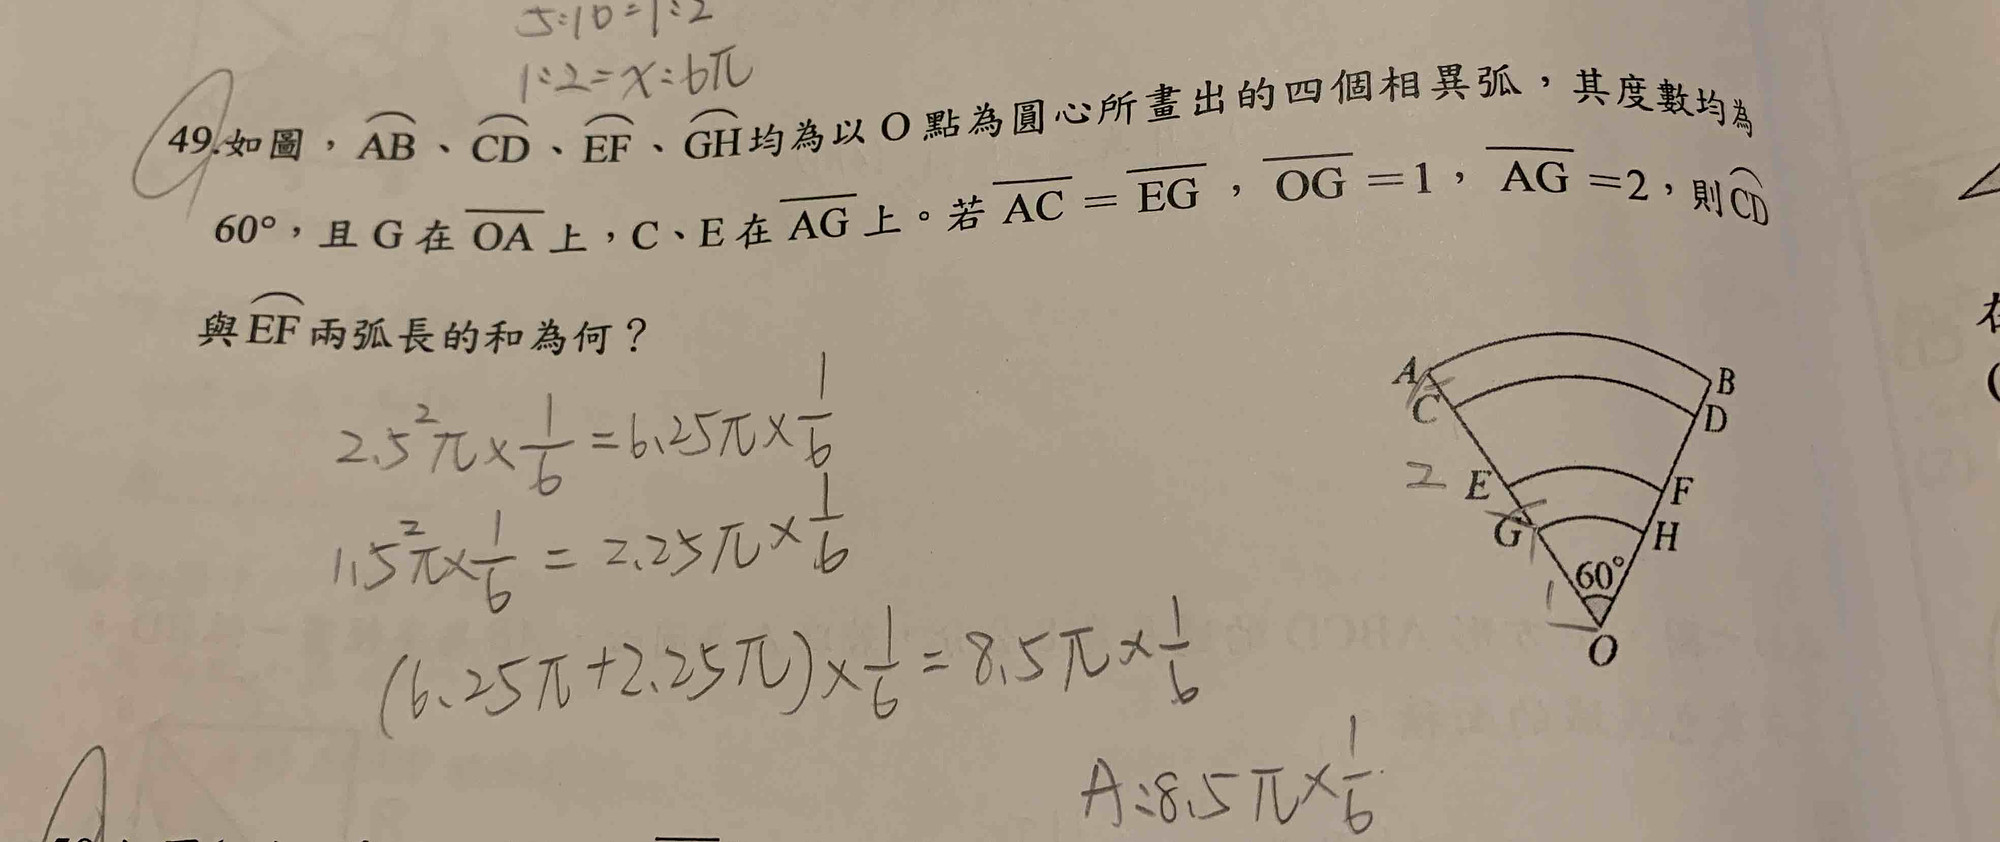 5:10=1:2
1:2=x:6π
49.如圖，AB、CD、EF、GH均為以O點為圓心所畫出的四個相異弧，其度數均為
60°，且G在OA上，C、E在AG上。若AC=EG，OG=1，AG=2，則CD
與EF兩弧長的和為何？
2.5²π×1/6=6.25π×1/6
1.5²π×1/6=2.25π×1/6
(6.25π+2.25π)×1/6=8.5π×1/6
A:8.5π×1/6
A
B
C
D
2
E
F
G
H
1
60°
O